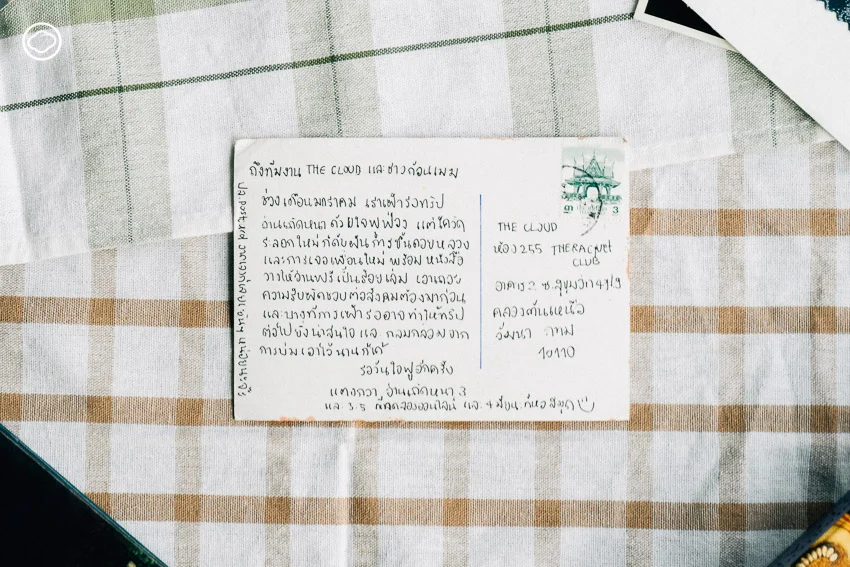 ถึงทีมงาน THE CLOUD และชาวก้อนเมฆ
ช่วงเดือนมกราคม เราเฝ้ารอทริป
อ่านเกิดหนา ด้วยใจพูฟ่อง แต่โควิด
ระลอกใหม่ก็ดับฝัน การขึ้นดอยหลวง
และการเจอเพื่อนใหม่ พร้อมหนังสือ
วางให้อ่านฟรีเป็นร้อยเล่ม เอาเถอะ
ความรับผิดชอบต่อสังคมต้องมาก่อน
และบางทีการเฝ้ารออาจทำให้ทริป
ต่อไปยิ่งน่าสนใจและกลมกล่อมจาก
การบ่มเอาไว้นานก็ได้
รอวันใจฟูอีกครั้ง
แตงกวา อ่านเกิดหนา 3
และ 3.5 ที่ออนไลน์ และ 4
THE CLOUD
ห้อง 255 THERACNET
CLUB
อาคาร 2 ซ.สุขุมวิท 49/9
คลองตันเหนือ
วัฒนา กทม
10110
๓ 3